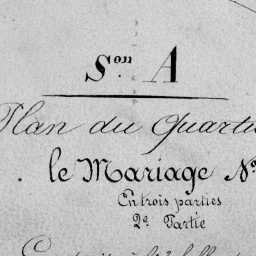 Son. A
Plan du Quarti
le Mariage No
En trois parties
2e. Partie